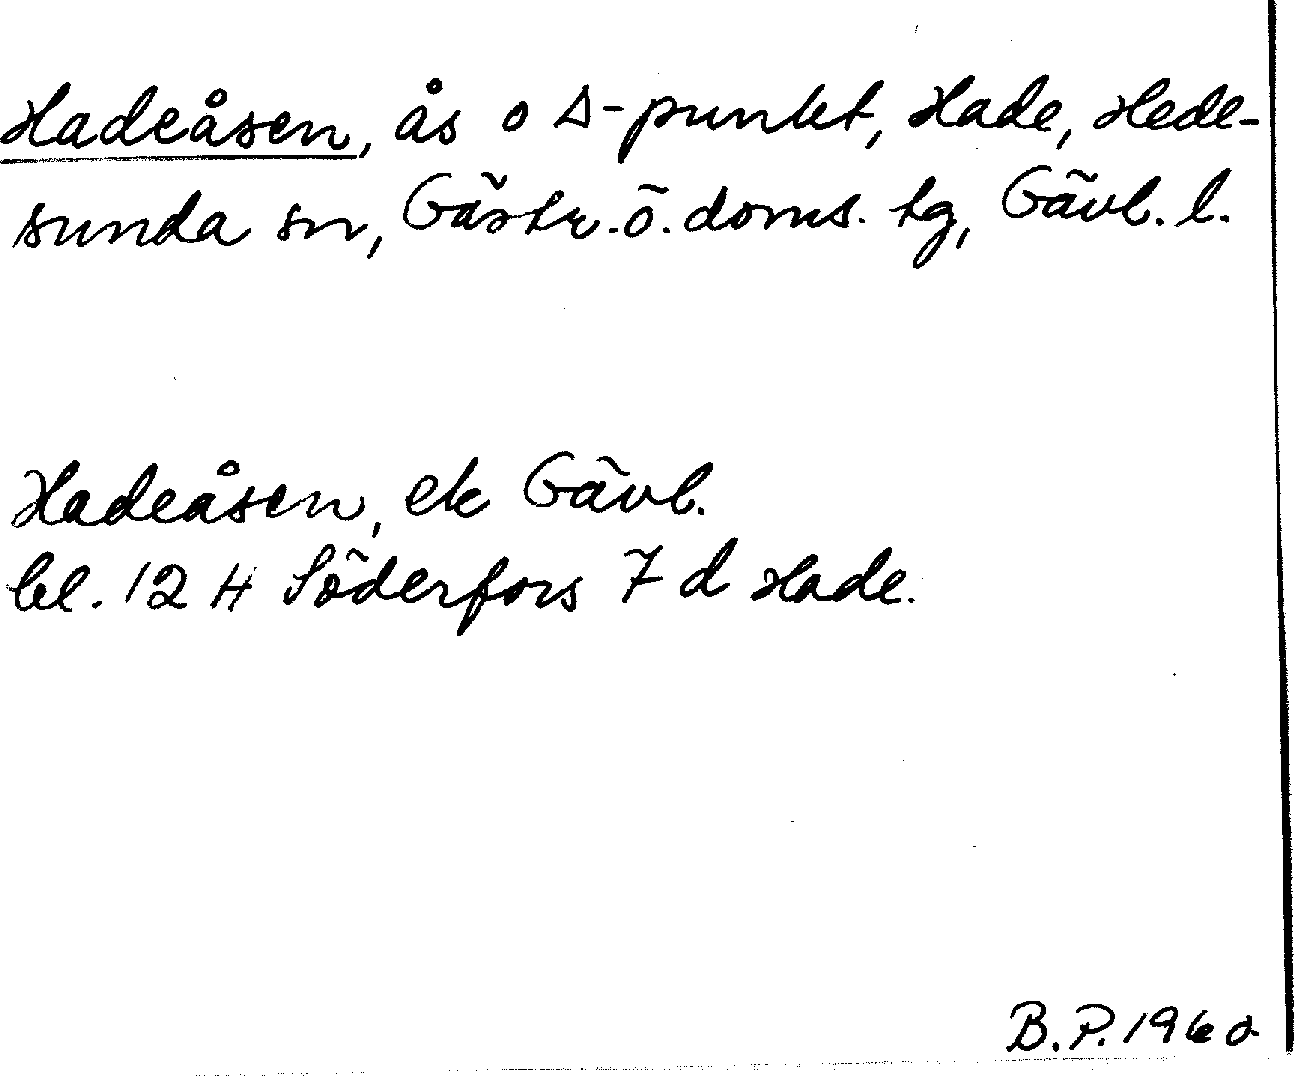 Hadeåsen, ås o Δ-punkt, Hade, Hede-
sunda sn, Gästr. ö. doms. tg, Gävl. l.
Hadeåsen, ek Gävl.
bl. 12 H Söderfors 7 d Hade.
B.P. 1962